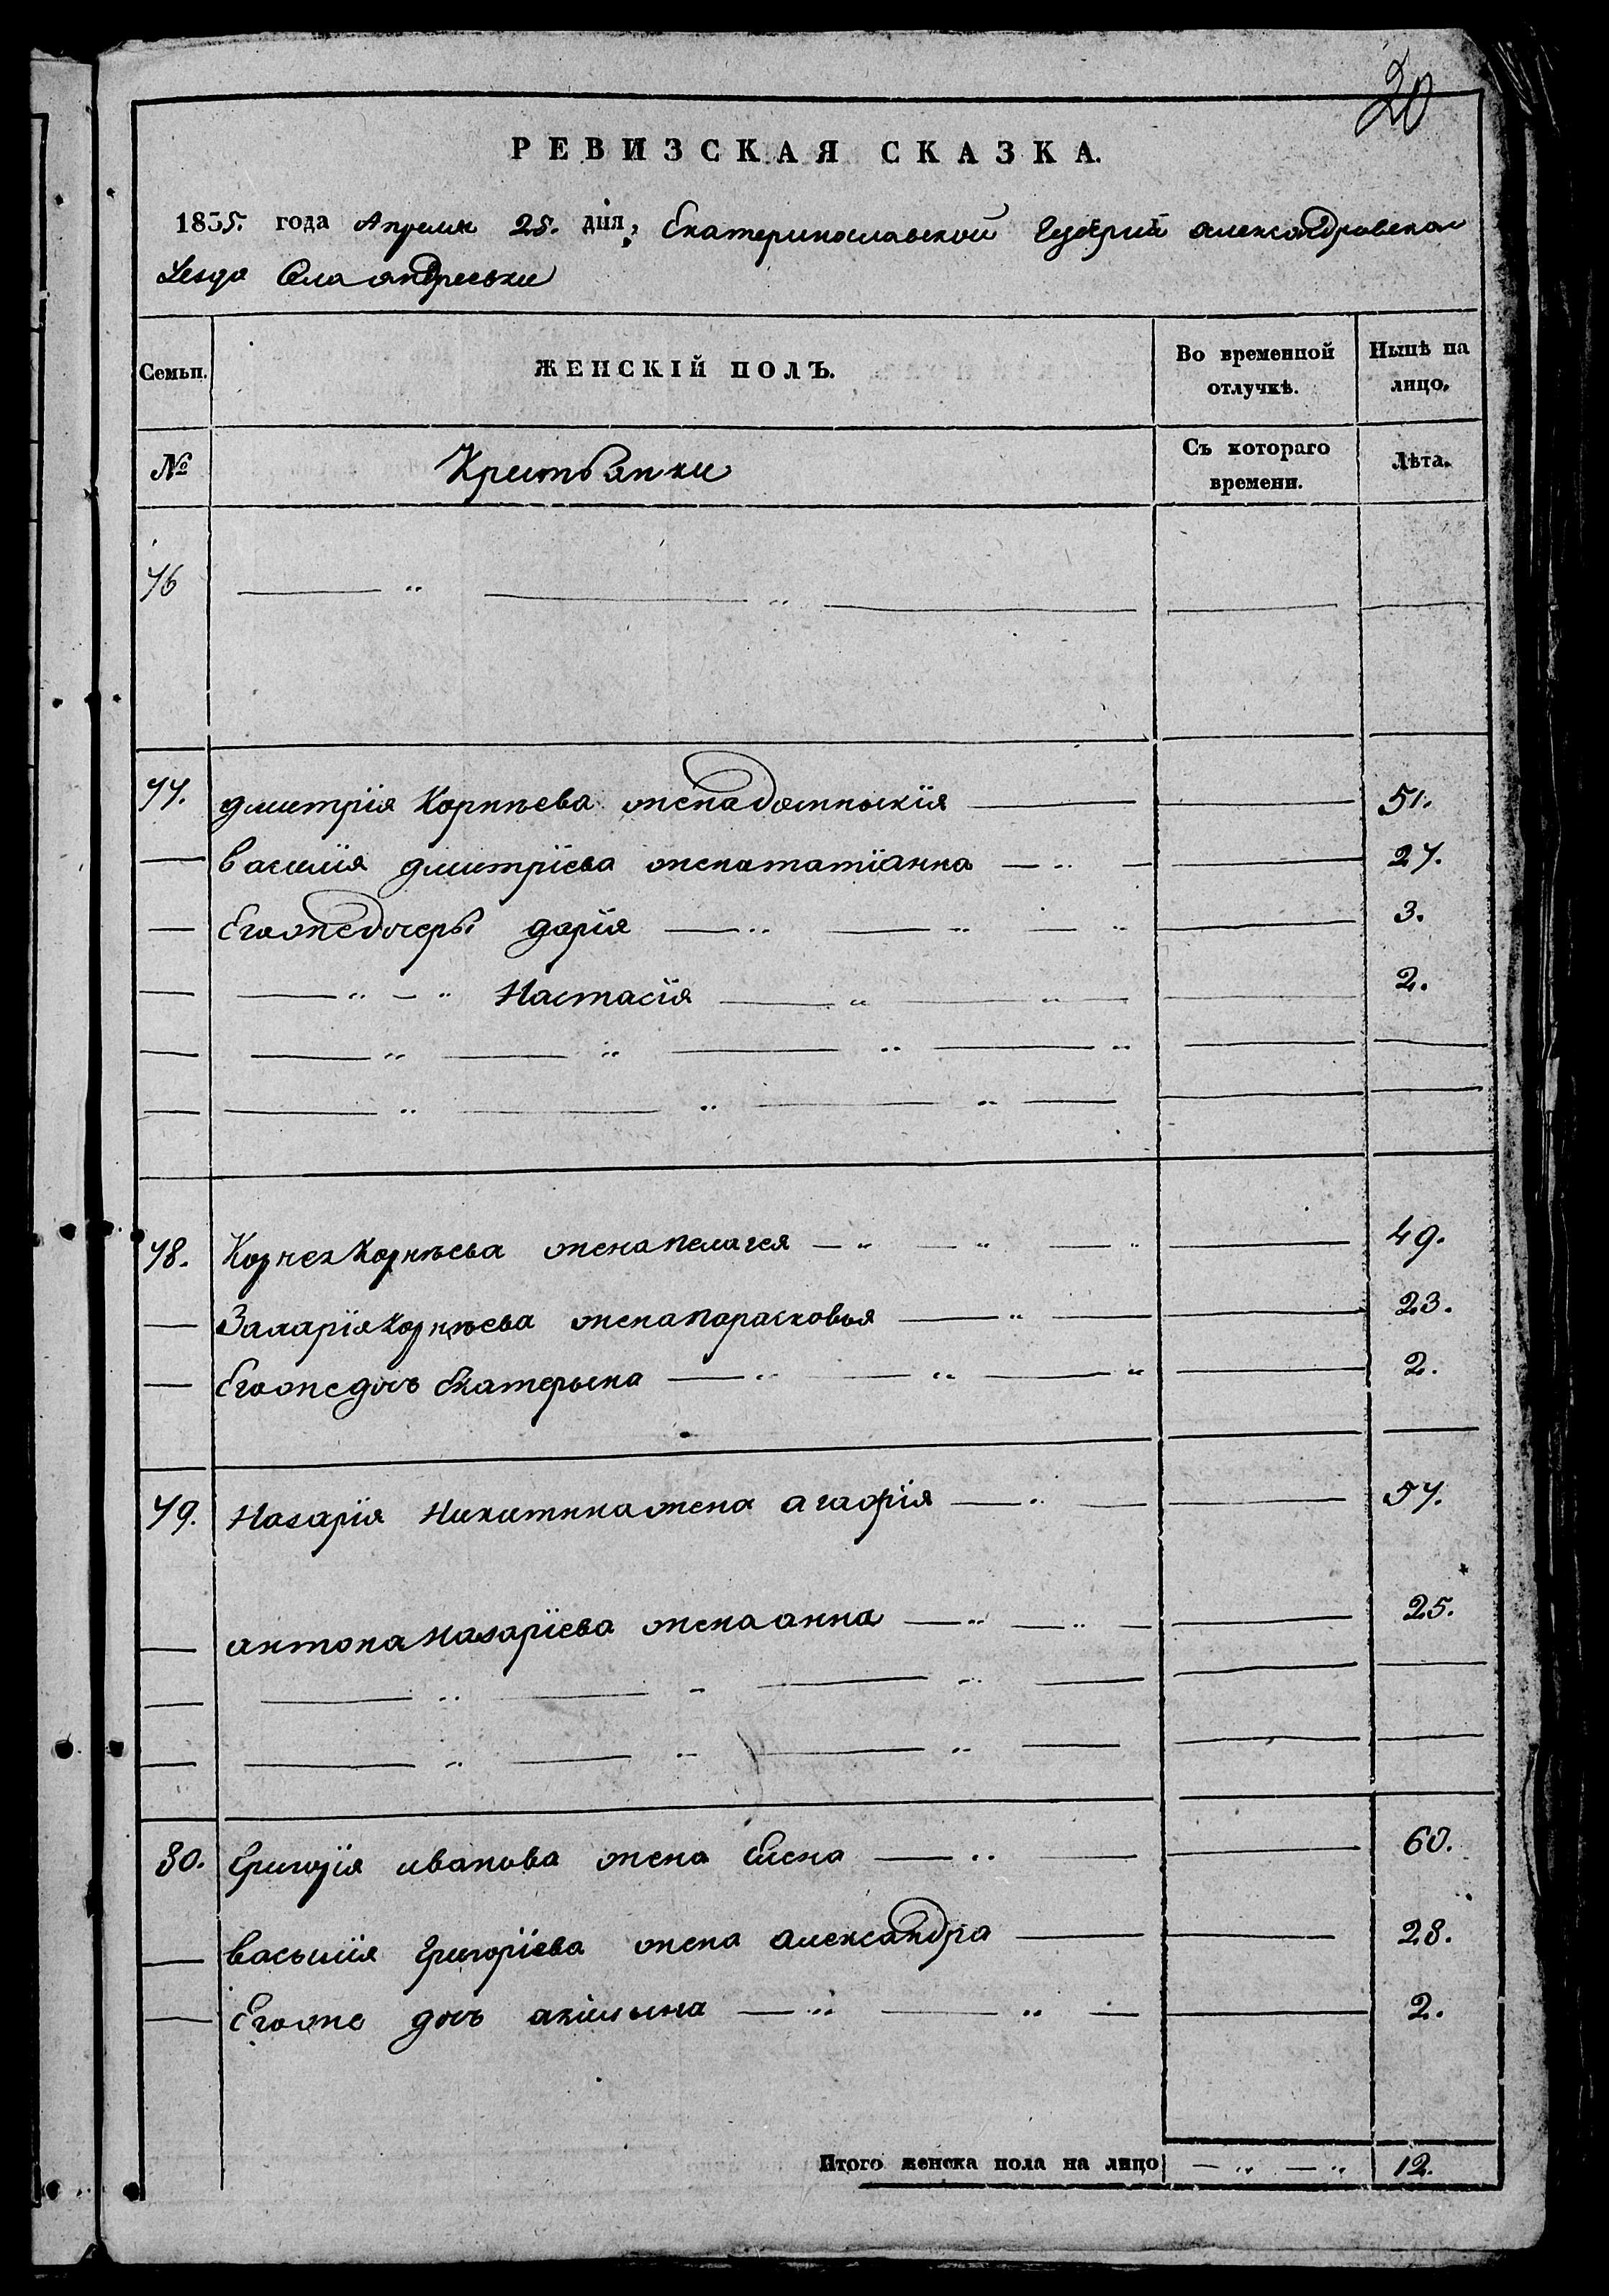 20
РЕВИЗСКАЯ СКАЗКА.
1835. года Апреля 25. дня, Екатеринославской Губернiи александровскаго
Уезда Села андреевки
Семьи. ЖЕНСКІЙ ПОЛЪ. Во временной отлучкѣ. Нынѣ на лицо.
№ Крестьянки Съ котораго времени. Лѣта.
76
77. дмитрія Корнѣева жена домникія 51.
— василія дмитріева жена татіанна 27.
— Егоже дочеры дарія 3.
— Настасія 2.
78. Корнея Корнѣева жена пелагея 49.
— Захарія Корнѣева жена парасковья 23.
— Егоже дочъ Екатерына 2.
79. Назарія Никитина жена агафія 57.
— антона назаріева жена анна 25.
80. Григорія иванова жена Елена 60.
— васылія Григоріева жена александра 28.
— Егоже дочъ акилына 2.
Итого женска пола на лицо 12.